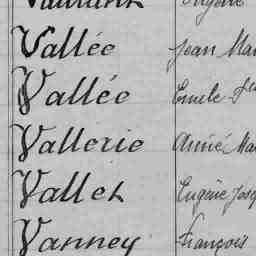 Vallée Jean
Vallée Emile
Vallerie Aimé
Vallet Eugène
Vanney François